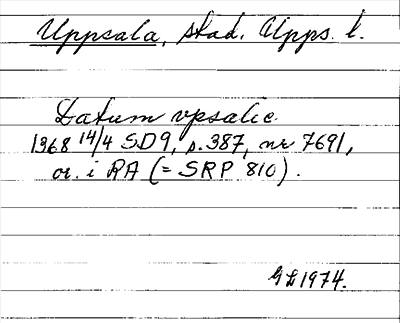 Uppsala, stad, Upps. l.
Datum vpsalie
1368 14/4 SD9, s. 387, nr 7691,
or. i RA (= SRP 810).
GL 1974.